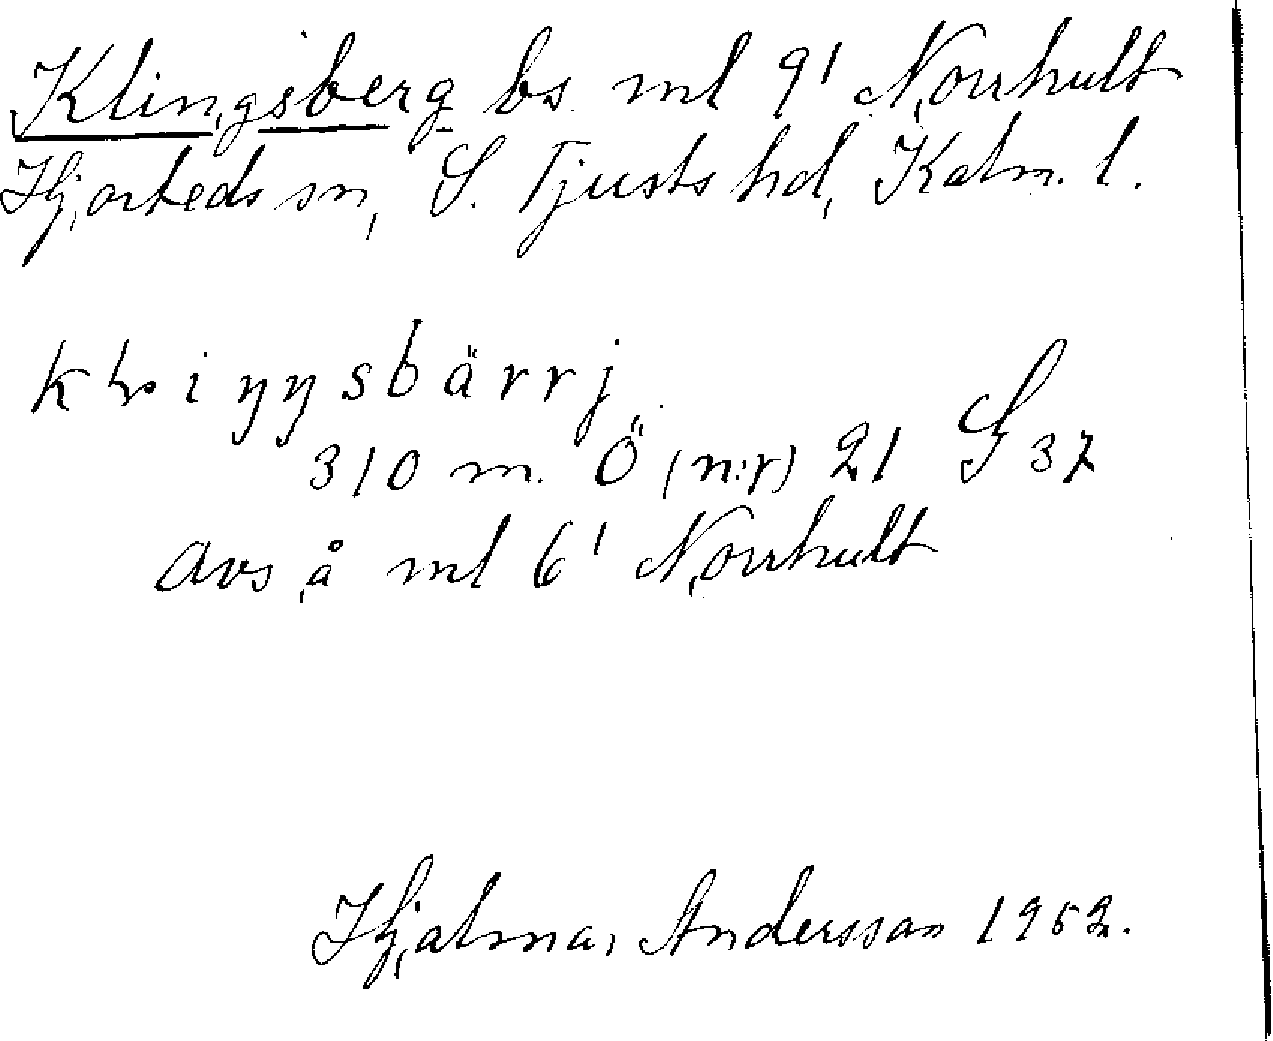 Klingsberg bs ml 9¹ Norrhult
Hjorteds sn, S. Tjusts hd, Kalm. l.
kliŋŋsbärrj
310 m. Ö (n:r) 21 S 37
avs å ml 6¹ Norrhult
Hjalmar Andersson 1952.